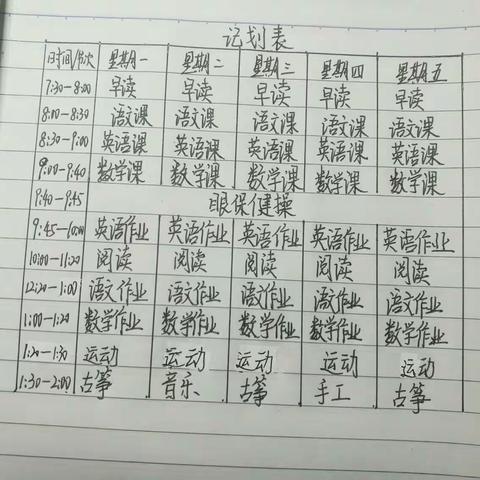 记划表
时间/节次 星期一 星期二 星期三 星期四 星期五
7:30-8:00 早读 早读 早读 早读 早读
8:00-8:30 语文课 语文课 语文课 语文课 语文课
8:30-9:00 英语课 英语课 英语课 英语课 英语课
9:00-9:40 数学课 数学课 数学课 数学课 数学课
9:40-9:45 眼保健操
9:45-10:00 英语作业 英语作业 英语作业 英语作业 英语作业
10:00-11:20 阅读 阅读 阅读 阅读 阅读
12:20-1:00 语文作业 语文作业 语文作业 语文作业 语文作业
1:00-1:20 数学作业 数学作业 数学作业 数学作业 数学作业
1:20-1:30 运动 运动 运动 运动 运动
1:30-2:00 古筝 音乐 古筝 手工 古筝